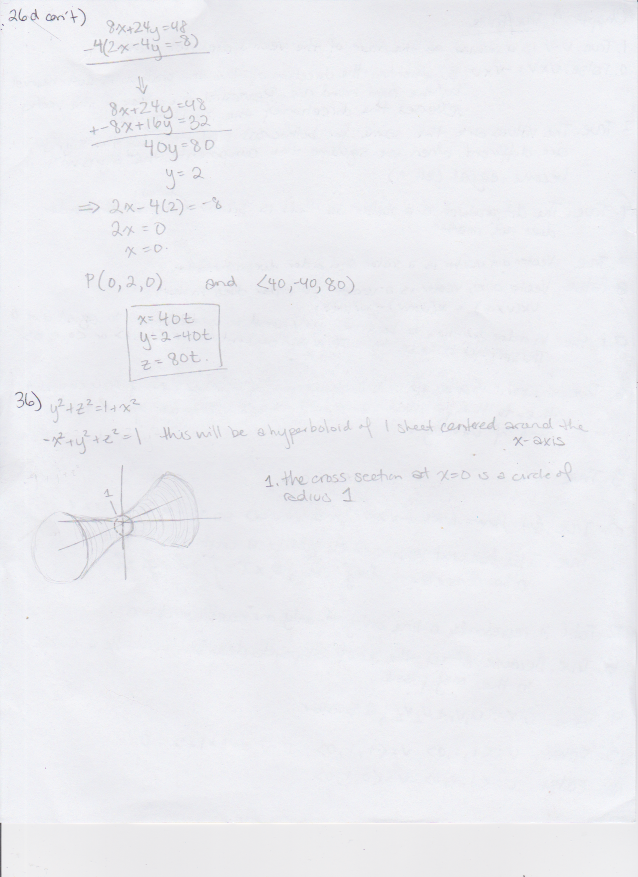 26d con't)
8x+24y=48
-4(2x-4y=-8)
⇓
8x+24y=48
+-8x+16y=32
40y=80
y=2
⇒ 2x-4(2)=-8
2x=0
x=0.
P(0,2,0) and <40,-40,80)
x=40t
y=2-40t
z=80t.
36) y²+z²=1+x²
-x²+y²+z²=1 this will be a hyperboloid of 1 sheet centered around the
x-axis
1. the cross section at x=0 is a circle of
radius 1
1